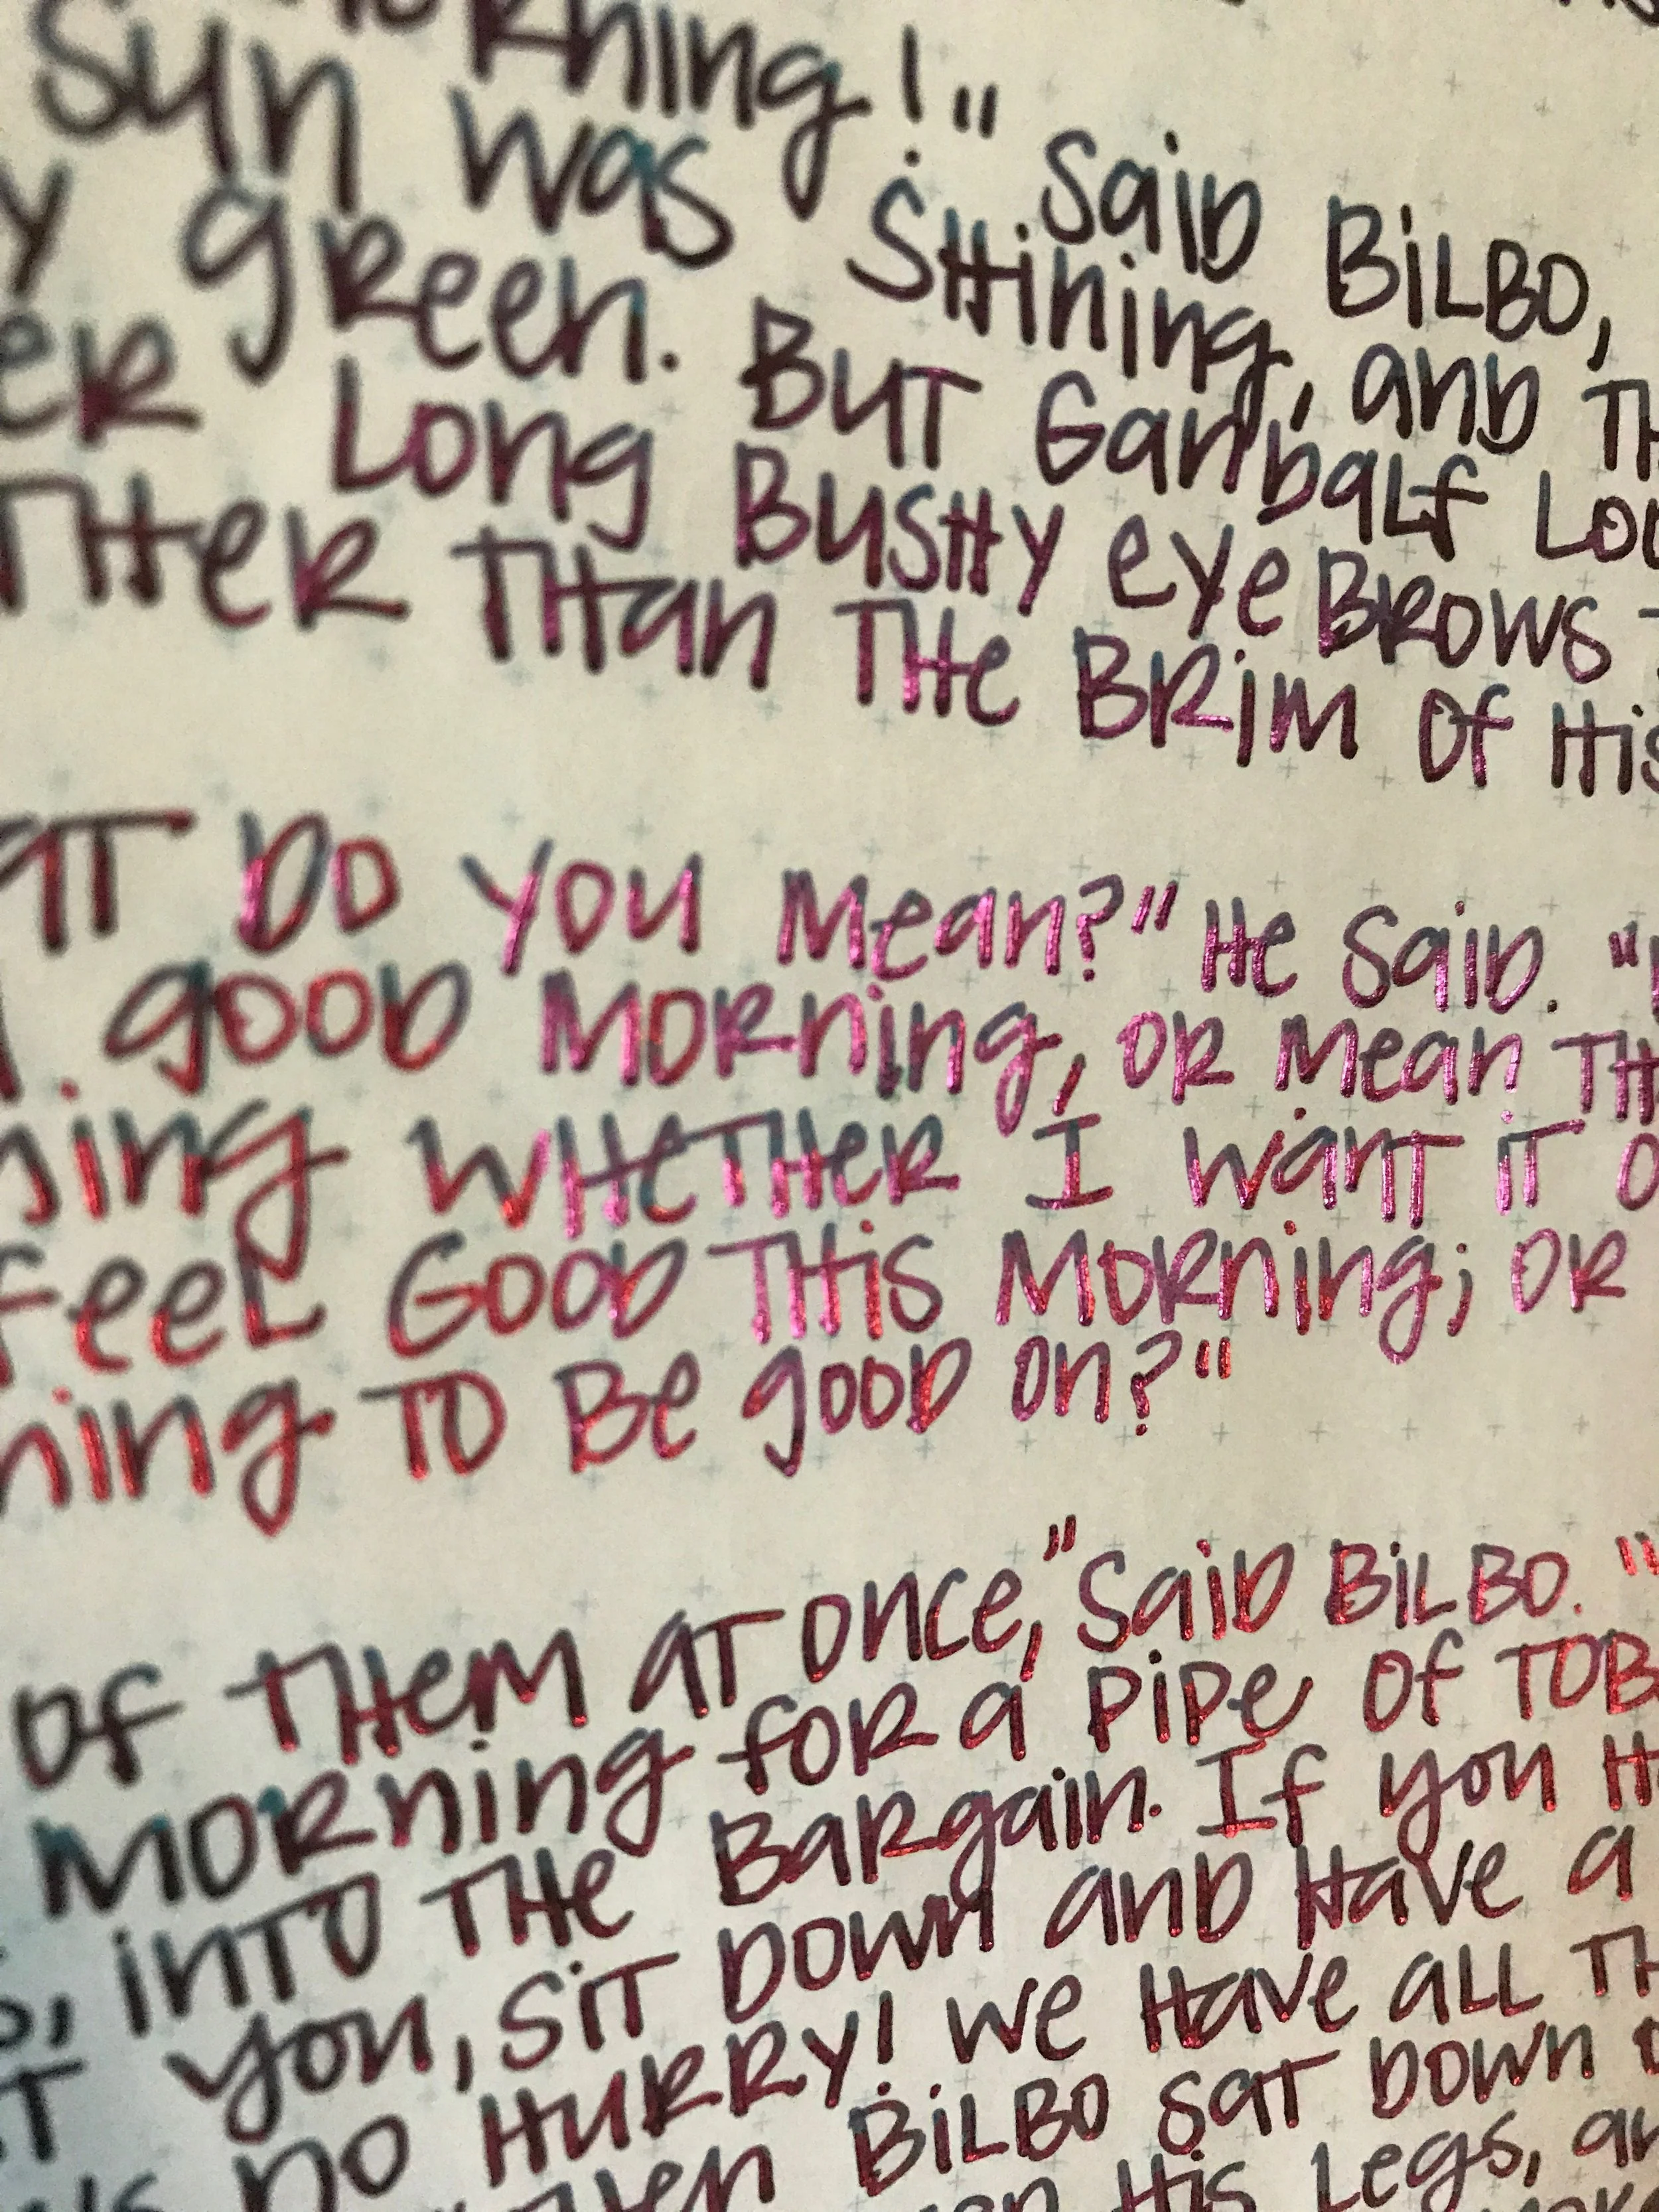 Morning!" Said Bilbo,
Sun was shining, and th
y green. But Gandalf Loo
er Long Bushy eyebrows
ther than the Brim of His
at do you mean?" He said. "
good morning, or mean th
ning whether I want it o
feel Good this morning; or
ning to Be good on?"
of them at once," Said Bilbo. "
morning for a pipe of tob
, into the Bargain. If you H
t you, sit down and Have a
no Hurry! we Have all th
Bilbo sat down o
His Legs, an